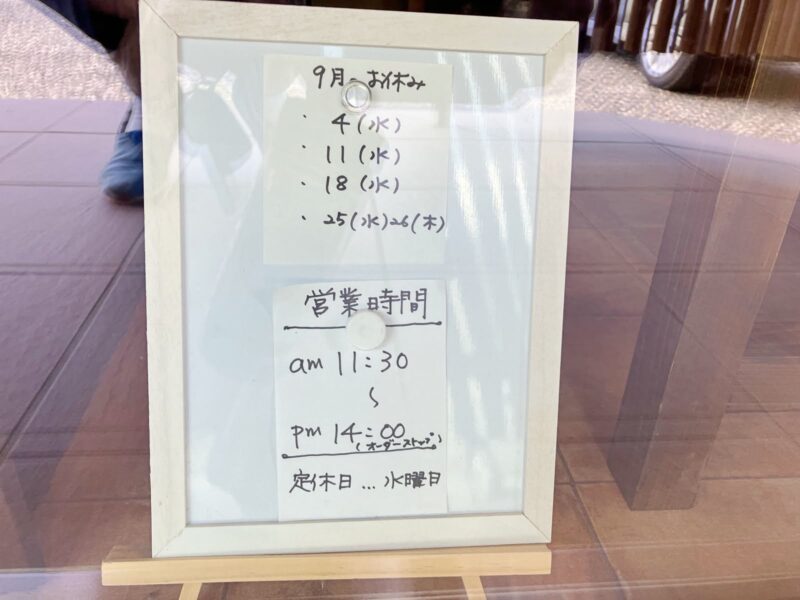 9月 お休み
・ 4(水)
・ 11(水)
・ 18(水)
・ 25(水)26(木)
営業時間
am 11:30
〜
pm 14:00
(オーダーストップ)
定休日...水曜日